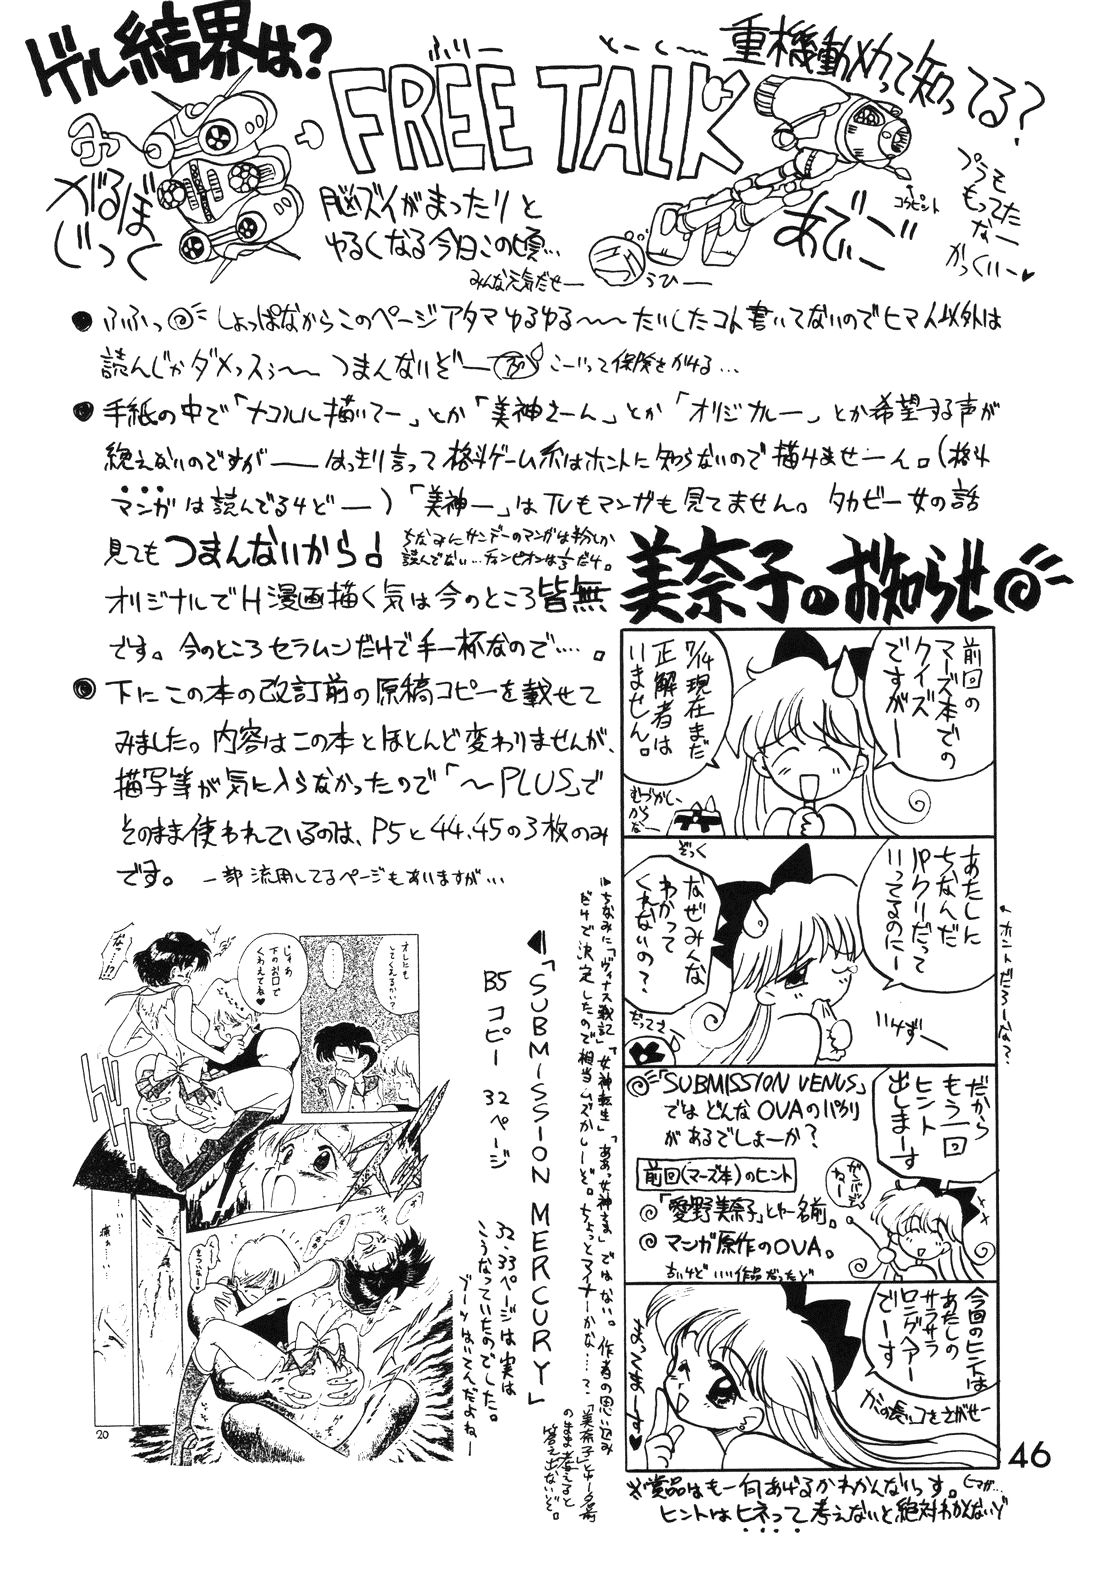 ゲル結界は?
FREE TALK
ふいー
とーくー
重機動メカって知ってる?
がるぼじっく
あでぃー
コクピット
プラモ
もってた
なー
かっくいー♥
脳ズイがまったりと
ゆるくなる今日この頃…
みんな元気だせー
うひー
●ふふっ しょっぱなからこのページアタマゆるゆる〜〜たいしたコト書いてないのでヒマ人以外は
読んじゃダメっスぅ〜〜 つまんないぞー こーいって保険をかける…
●手紙の中で「ナコルル描いてー」とか「美神さーん」とか「オリジナルー」とか希望する声が
絶えないのですが——はっきり言って格斗ゲーム系はホントに知らないので描けませーん。(格斗
マンガは読んでるけどー)「美神ー」はTVもマンガも見てません。タカビー女の話
見てもつまんないから!
ちなみにサンデーのマンガは椎名しか
オリジナルでH漫画描く気は今のところ皆無
です。今のところセラムンだけで手一杯なので……。
◎下にこの本の改訂前の原稿コピーを載せて
みました。内容はこの本とほとんど変わりませんが、
描写等が気に入らなかったので「〜PLUS」で
そのまま使われているのは、P5と44.45の3枚のみ
です。 一部流用してるページもありますが…
美奈子のお知らせ
前回の
マーズ本での
クイズ
ですがー
7/14現在まだ
正解者は
いません。
むづかしい
から
なー
あたしに
ちなんだ
パクリだって
いってるのにー
なぜみんな
わかって
くれないの?
ぞっく
だってさ
いけずー
←ホントだろーな?
だから
もう一回
ヒント
出しまーす
◎「SUBMISSION VENUS」
ではどんなOVAのパクリ
があるでしょーか?
前回(マーズ本)のヒント
◎「愛野美奈子」とゆー名前。
◎マンガ原作のOVA。
古いけどいい作品だったど
ガンバってねー
今回のヒントは
あたしの
サラサラ
ロングヘアー
でーす
カミの長いコをさがせー
46
※賞品はもー何あげるかわかんないっす。ヒマが…
ヒントはヒネって考えないと絶対わかんないゾ
ちなみに「ヴィナス戦記」「女神転生」「ああっ女神さま」ではない。作者の思い込み
だけで決定したので相当ムズかしーぞ。ちょっとマイナーかな…?「美奈子」とゆー名前
のまま考えると
答え出ないぞ。
◀「SUBMISSION MERCURY」
B5 コピー 32ページ
32.33ページは実は
こうなっていたのでした。
ブーツはいてんだよねー
オレにも
してくれるかい?
じゃあ
下のお口で
くわえてね♥
だっ…
!?
20